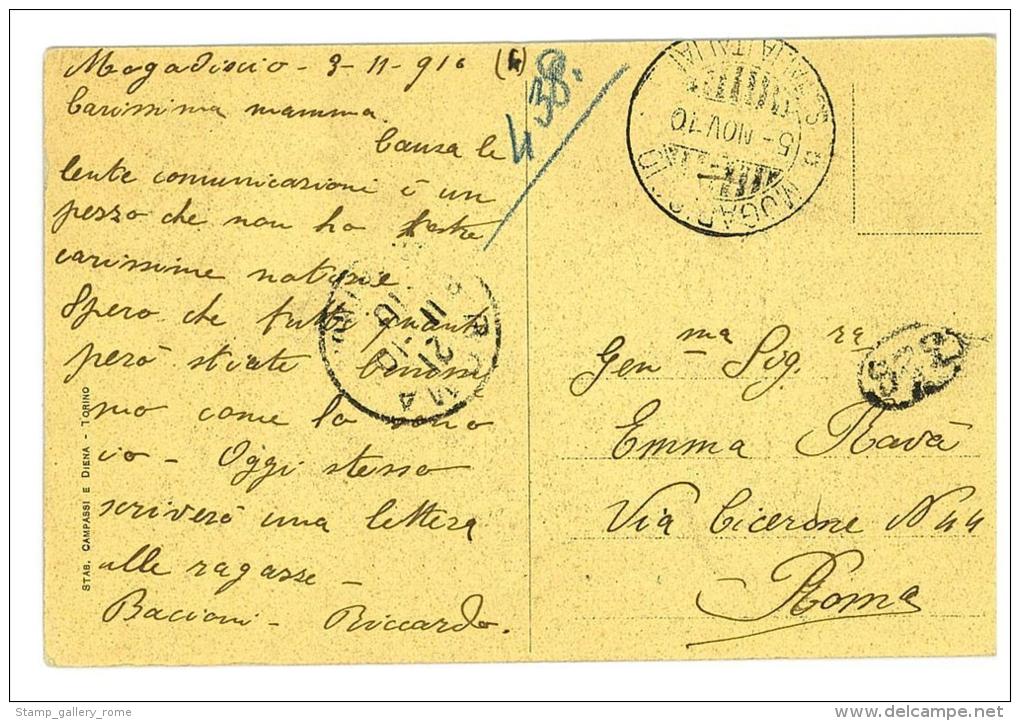 Mogadiscio - 3-11-910 (4)
Carissima mamma.
Causa le
lente comunicazioni è un
pezzo che non ho vostre
carissime notizie
Spero che tutti quanti
però stiate benissi
mo come lo sono
io - Oggi stesso
scriverò una lettera
alle ragazze -
Bacioni - Riccardo.
438.
5 - NOV. 10
ROMA
21·10
11
STAB. CAMPASSI E DIENA - TORINO
Gen.ma Sig.ra
Emma Ravà
Via Cicerone N 44
Roma
Stamp_gallery_rome
www.delcampe.net